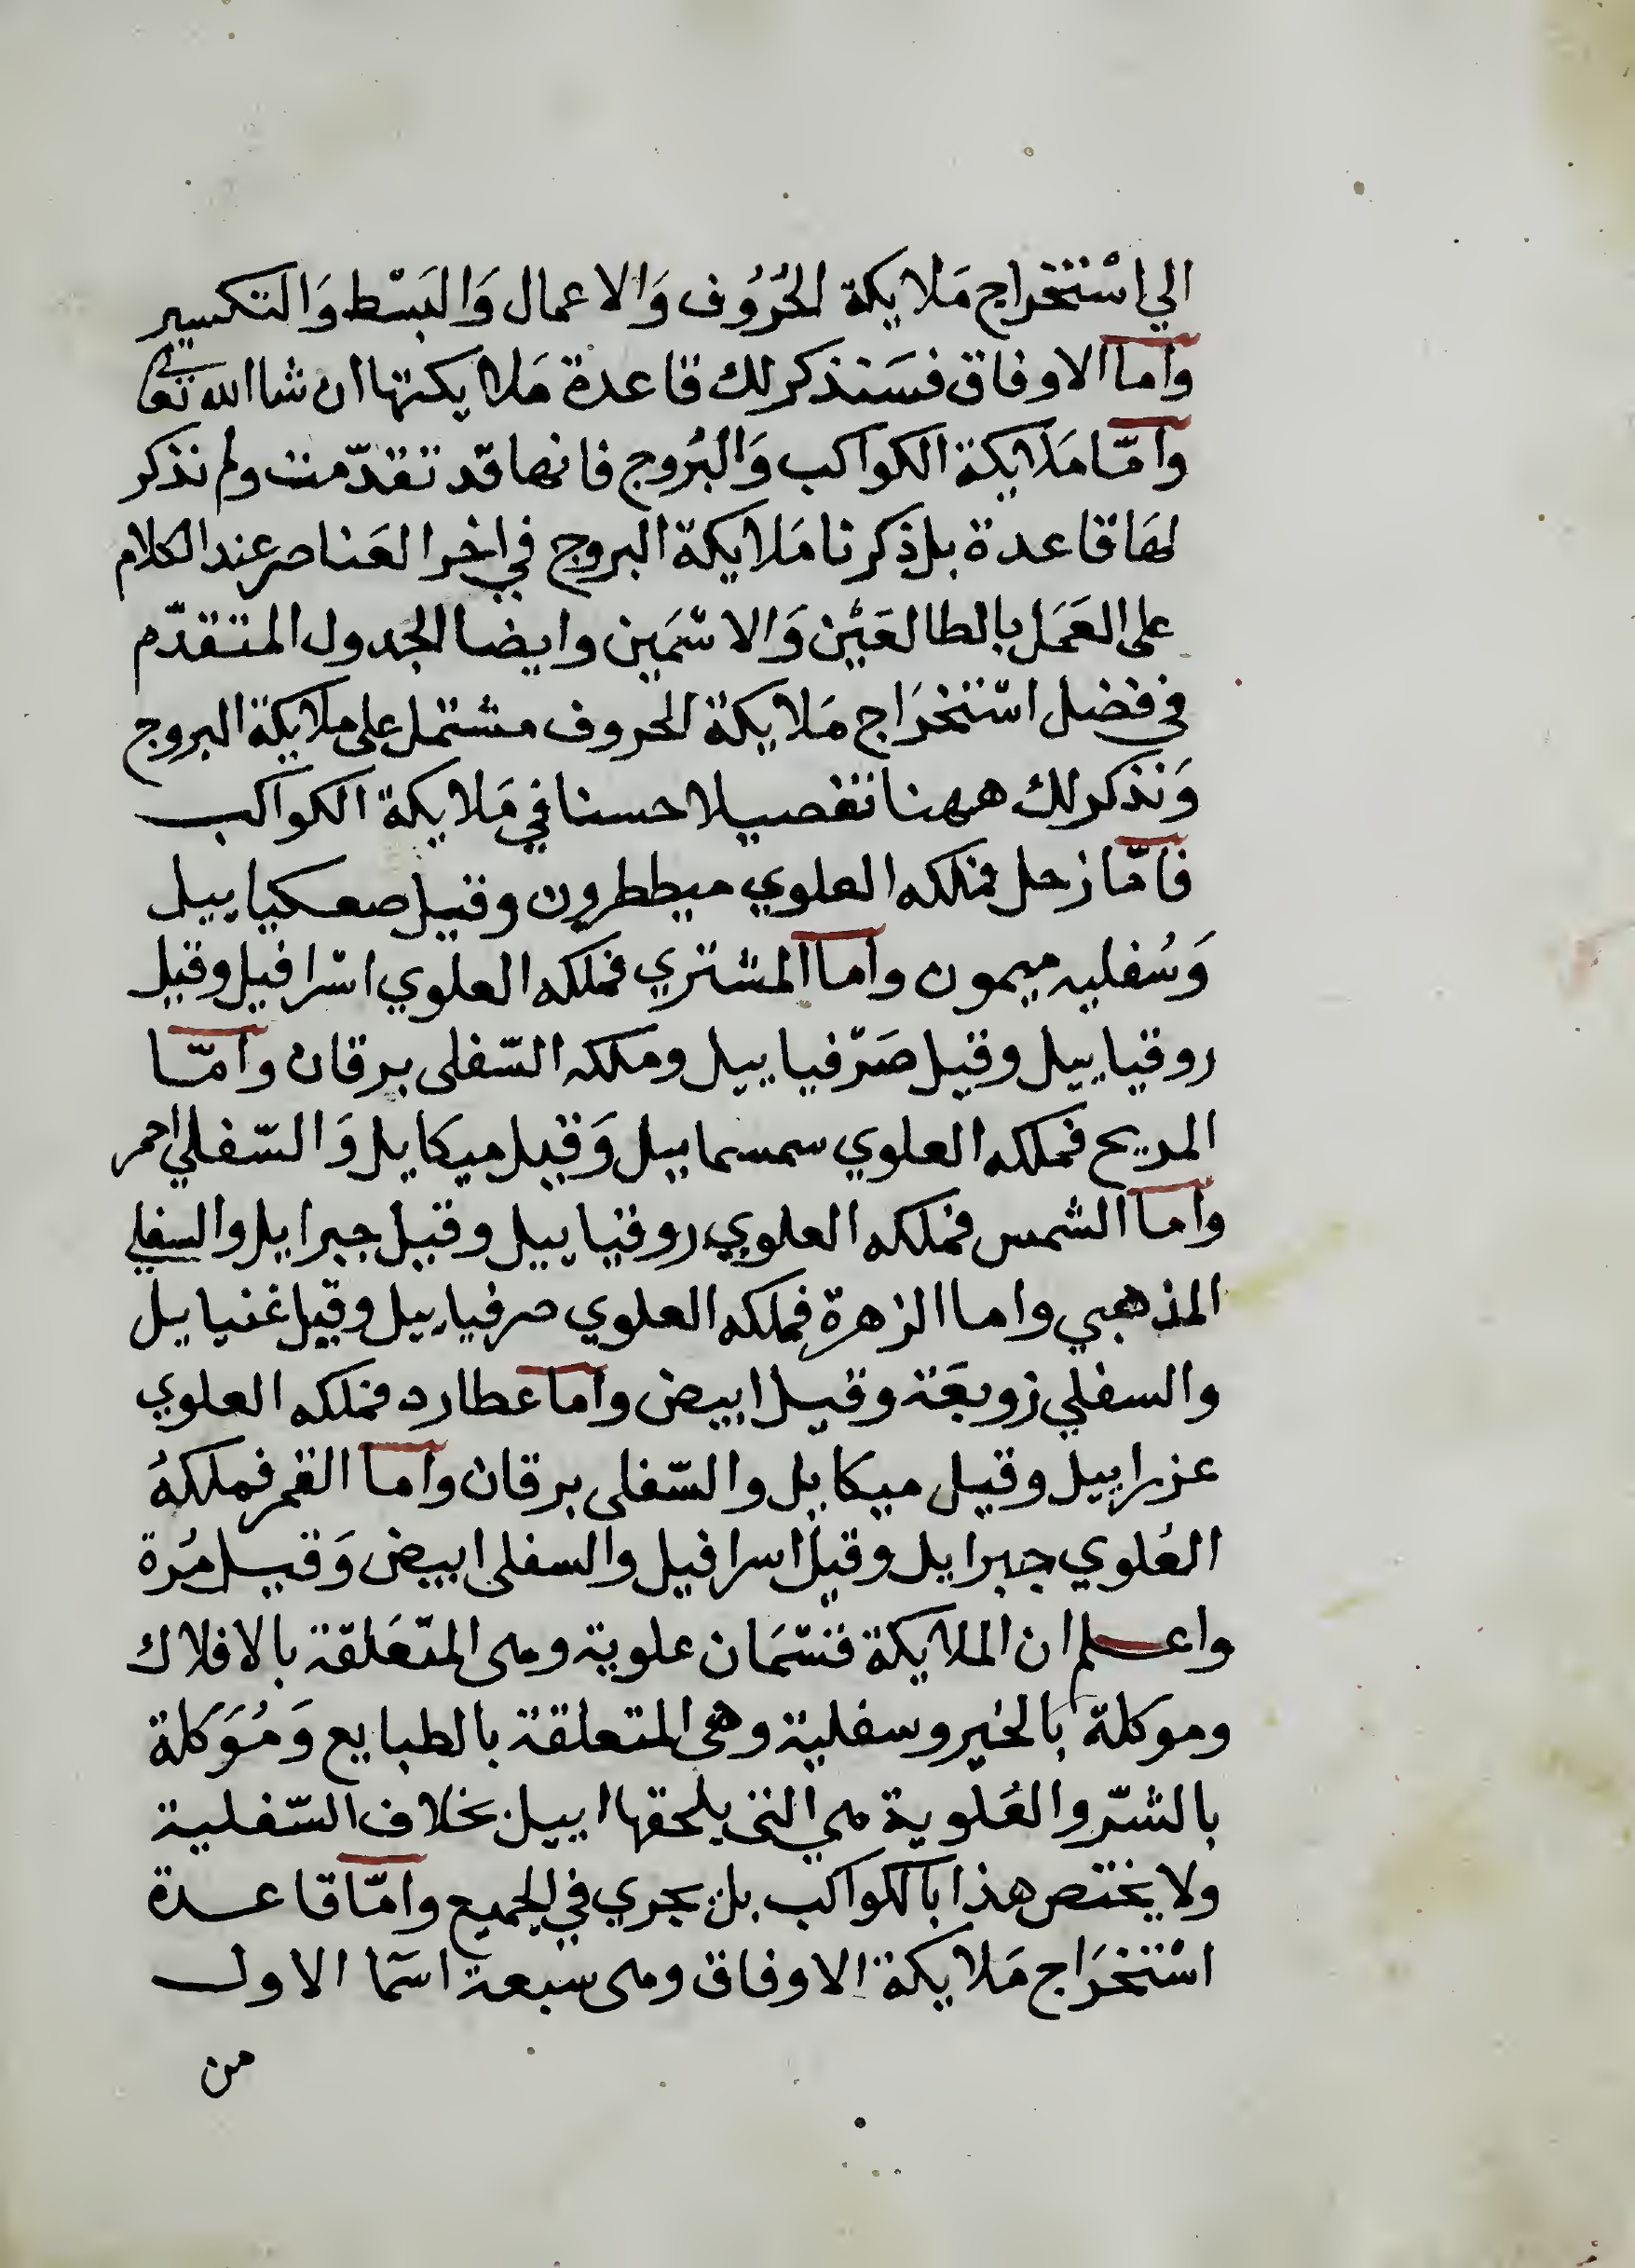 الي اسْتخراج مَلايكة الحُرُوف وَالاعمال وَالبَسْط وَالتكسير
واما الاوفاق فسَنذكر لك قاعدة مَلايكتها ان شا الله تعالى
وامّا مَلايكة الكواكب وَالبُروج فانها قد تقدّمت ولم نذكر
لهَا قاعدة بل ذكرنا مَلايكة البروج في اخر العَناصر عند الكلام
على العَمَل بالطالعَيْن وَالاسْمَين وايضا الجدول المتقدّم
في فضل اسْتخرَاج مَلايكة الحروف مشتمل على ملايكة البروج
وَنذكر لك ههنا تفصيلا حسنا في مَلايكة الكواكب
فامّا زحل فملكه العلوي ميططرون وقيل صعكياييل
وَسُفليه ميمون واما المشتري فملكه العلوي اسْرافيل وقيل
روقياييل وقيل صَرْفياييل وملكه السّفلى برقان وامّا
المريخ فملكه العلوي سمسماييل وَقيل ميكايل وَالسّفلي احمر
واما الشمس فملكه العلوي روقياييل وقيل جبرايل والسفلي
المذهبي واما الزهرة فملكه العلوي صرفياييل وقيل غنيايل
والسفلي زوبعَة وقيل ابيض واما عطارد فملكه العلوي
عزراييل وقيل ميكايل والسّفلى برقان واما القمر فملكهُ
العُلوي جبرايل وقيل اسرافيل والسفلى ابيض وَقيل مُرة
واعلم ان الملايكة قسْمَان علوية وهى المتعَلقة بالافلاك
وموكلة بالخير وسفلية وهى المتعلقة بالطبايع وَمُوَكلة
بالشّر والعُلوية هي التى يلحقها اييل بخلاف السّفلية
ولا يختص هذا بالكواكب بل يجري في الجميع وامّا قاعدة
اسْتخرَاج مَلايكة الاوفاق وهى سبعة اسمَا الاول
من